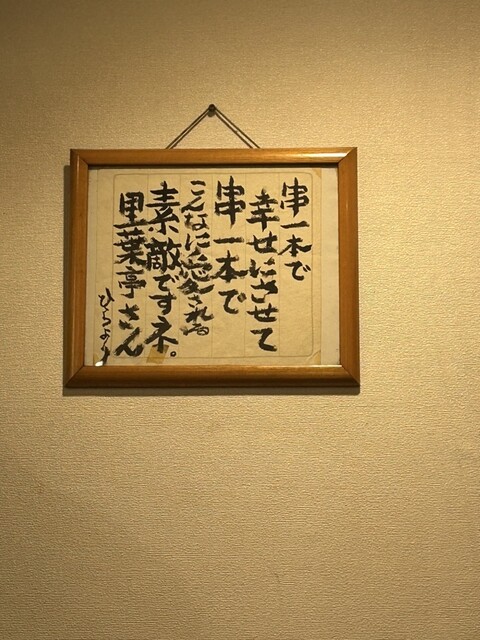 串一本で
幸せにさせて
串一本で
こんなに愛される
素敵ですネ。
里葉亭さん
ひろより